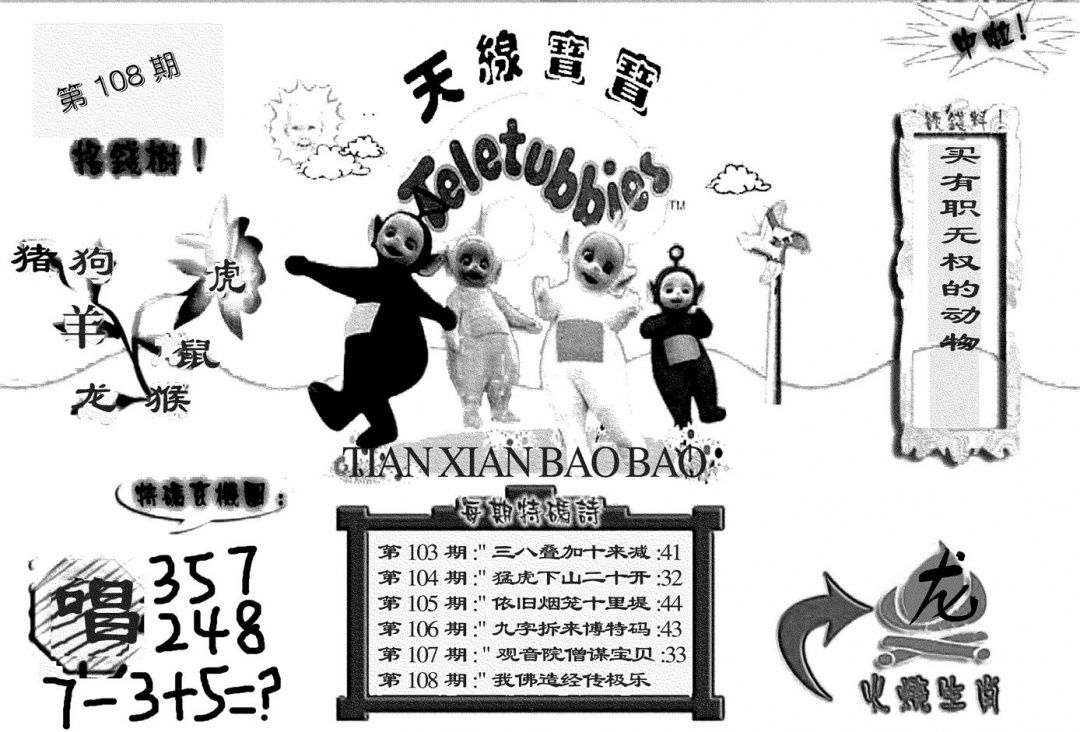 第 108 期
摇錢樹！
猪 狗 虎
羊
鼠
龙 猴
天線寶寶
Teletubbies™
TIAN XIAN BAO BAO
中啦！
买有职无权的动物
特碼玄機圖：
唱
357
248
7-3+5=?
每期特碼詩
第 103 期 :" 三八叠加十来减 :41
第 104 期 :" 猛虎下山二十开 :32
第 105 期 :" 依旧烟笼十里堤 :44
第 106 期 :" 九字拆来博特码 :43
第 107 期 :" 观音院僧谋宝贝 :33
第 108 期 :" 我佛造经传极乐
龙
火燒生肖